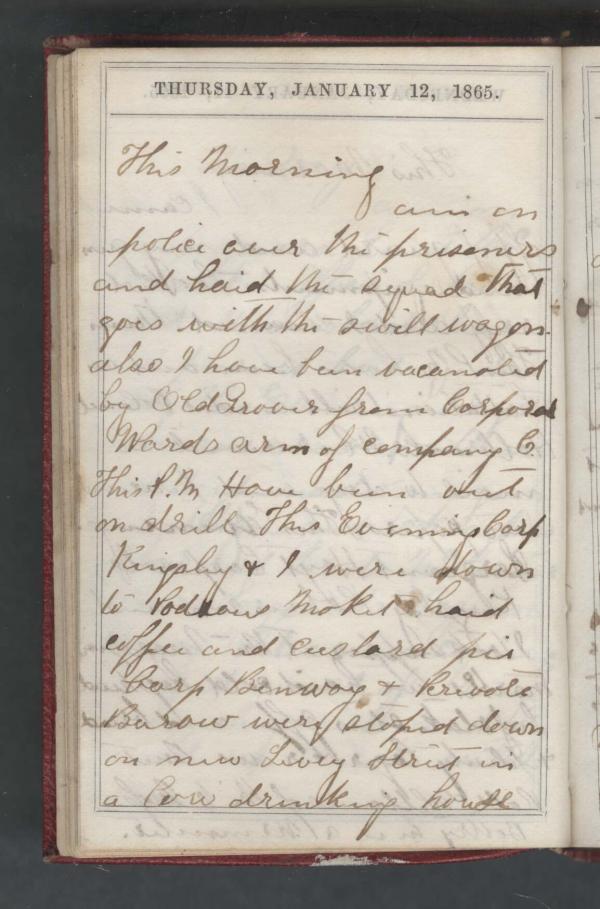 THURSDAY, JANUARY 12, 1865.
This Morning
am on
police over the prisoners
and haid the squad that
goes with the swill wagon
also I have been vacanated
by Old Grover from Corporal
Wards arm of company C.
This P.M Have been out
on drill This Evening Corp
Kingsby & I were down
to Market haid
coffee and custard pie
Corp Benway & Private
Barow were stoped down
on new Street in
a Low drinking house